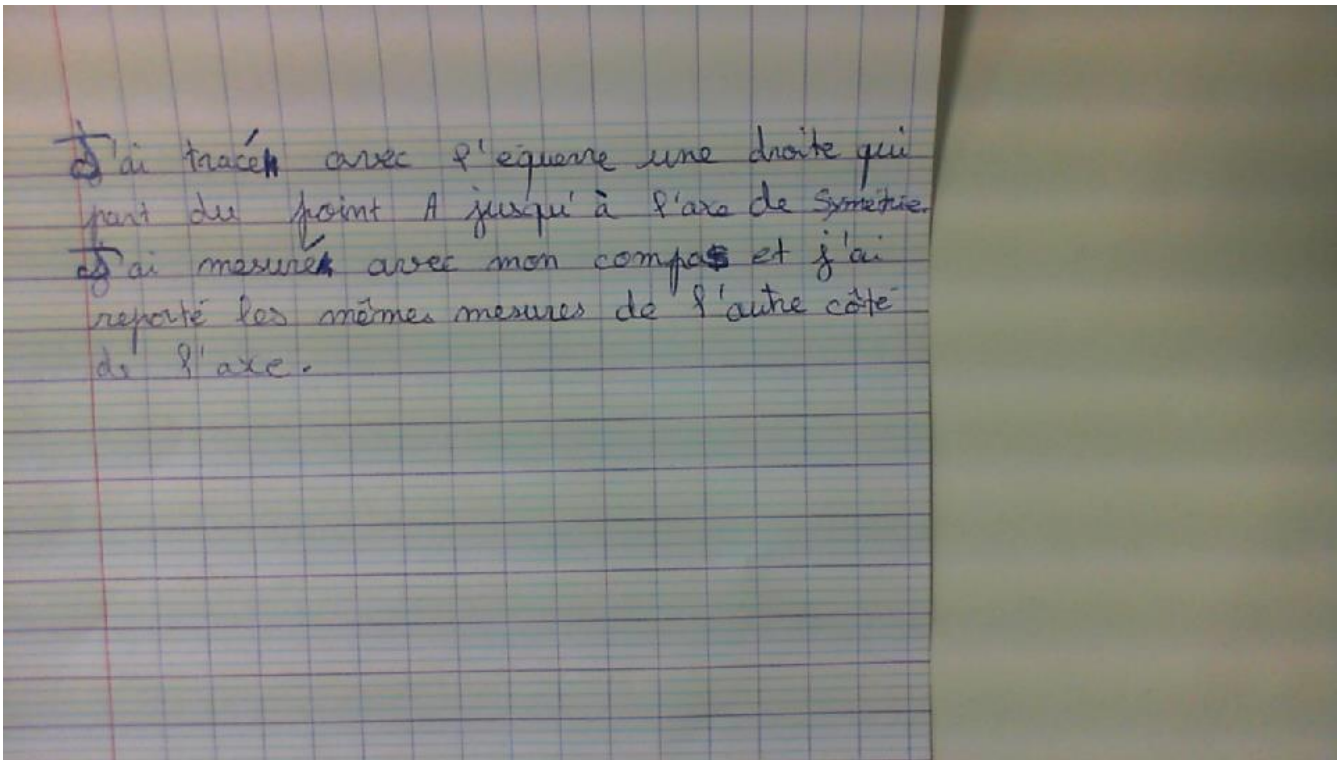 J'ai tracé avec l'equerre une droite qui
part du point A jusqu'à l'axe de symétrie.
J'ai mesuré avec mon compas et j'ai
reporté les mêmes mesures de l'autre côté
de l'axe.